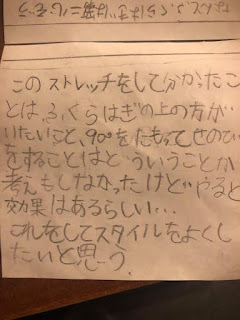 このストレッチをして分かったこ
とは、ふくらはぎの上の方が
いたいこと、90°をたもってせのび
をすることはどういうことか
考えもしなかったけどやると
効果はあるらしい…
これをしてスタイルをよくし
たいと思う。